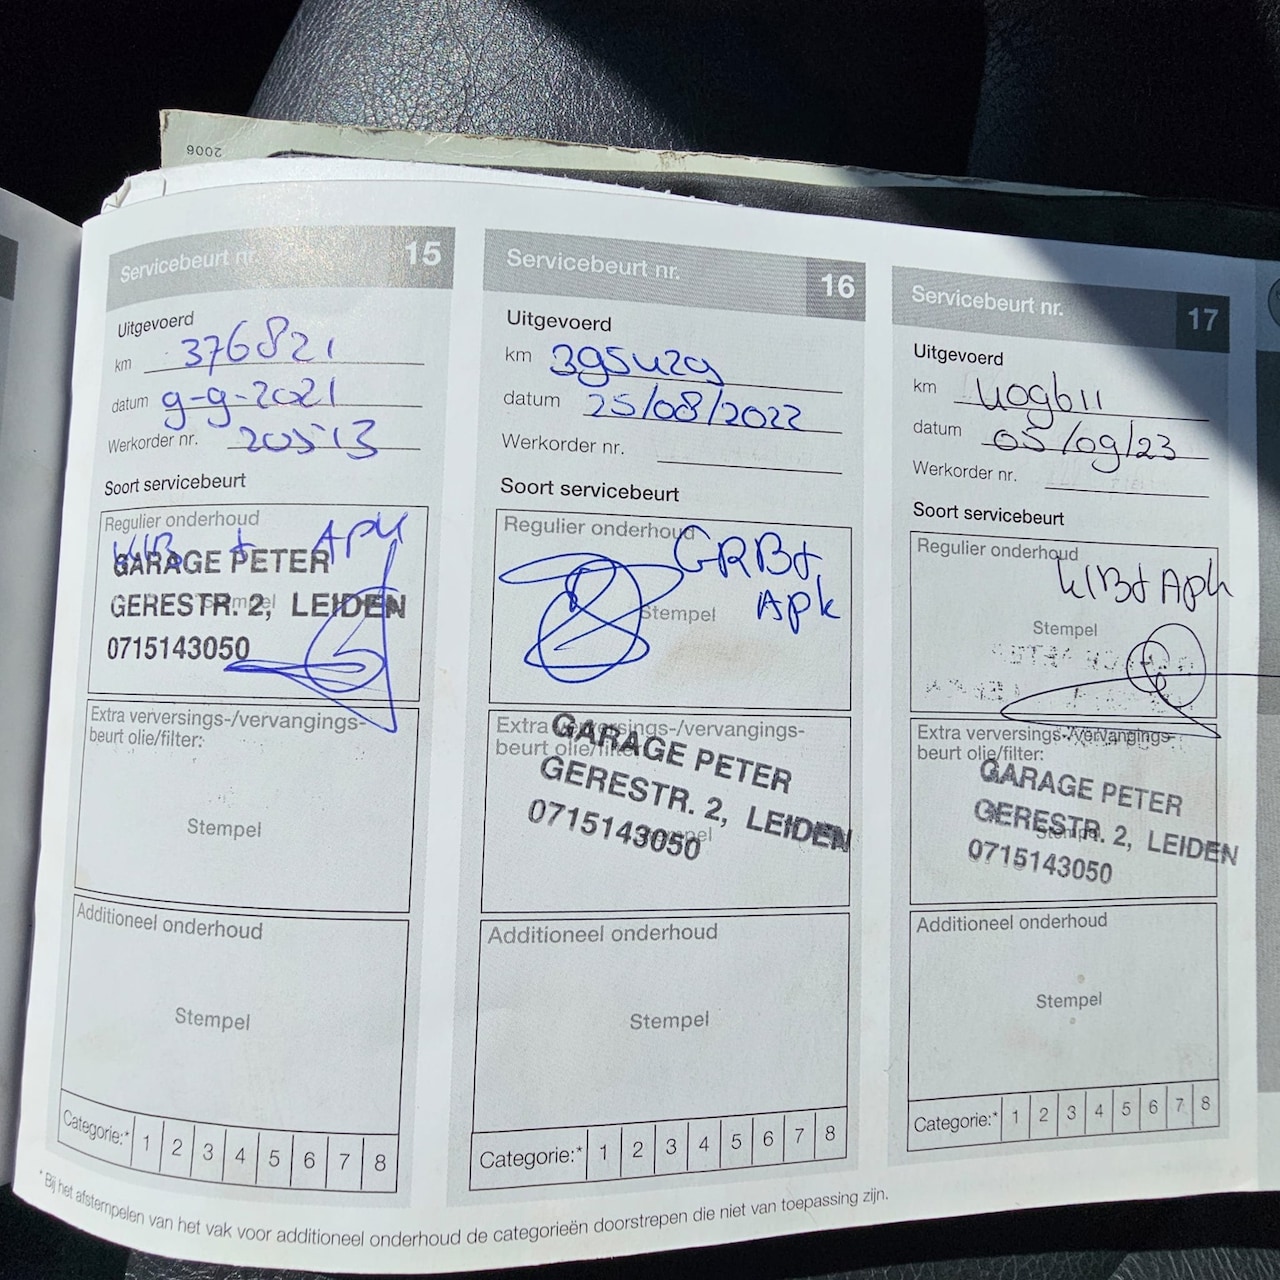 2006
Servicebeurt nr. 15
Uitgevoerd
km 376821
datum 9-9-2021
Werkorder nr. 20513
Soort servicebeurt
Regulier onderhoud
KLB + Apk
GARAGE PETER
GERESTR. 2, LEIDEN
0715143050
Stempel
Extra verversings-/vervangings-
beurt olie/filter:
Stempel
Additioneel onderhoud
Stempel
Categorie:* 1 2 3 4 5 6 7 8
Servicebeurt nr. 16
Uitgevoerd
km 395429
datum 25/08/2022
Werkorder nr.
Soort servicebeurt
Regulier onderhoud
GRB+
Apk
Stempel
Extra verversings-/vervangings-
beurt olie/filter:
GARAGE PETER
GERESTR. 2, LEIDEN
0715143050
Stempel
Additioneel onderhoud
Stempel
Categorie:* 1 2 3 4 5 6 7 8
Servicebeurt nr. 17
Uitgevoerd
km 409611
datum 05/09/23
Werkorder nr.
Soort servicebeurt
Regulier onderhoud
KLB+ Apk
Stempel
Extra verversings-/vervangings-
beurt olie/filter:
GARAGE PETER
GERESTR. 2, LEIDEN
0715143050
Stempel
Additioneel onderhoud
Stempel
Categorie:* 1 2 3 4 5 6 7 8
* Bij het afstempelen van het vak voor additioneel onderhoud de categorieën doorstrepen die niet van toepassing zijn.